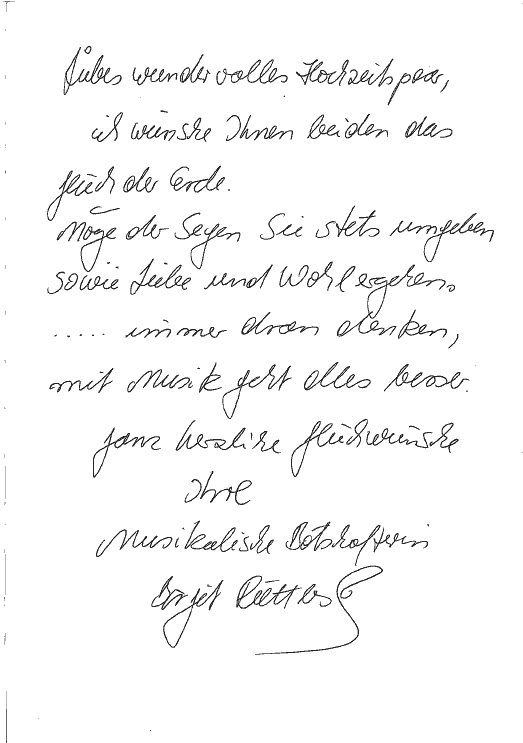 Liebes wundervolles Hochzeitspaar,
ich wünsche Ihnen beiden das
Glück der Erde.
Möge der Segen Sie stets umgeben
sowie Liebe und Wohlergehen.
..... immer dran denken,
mit Musik geht alles besser.
Ganz herzliche Glückwünsche
Ihre
Musikalische Botschafterin
Birgit